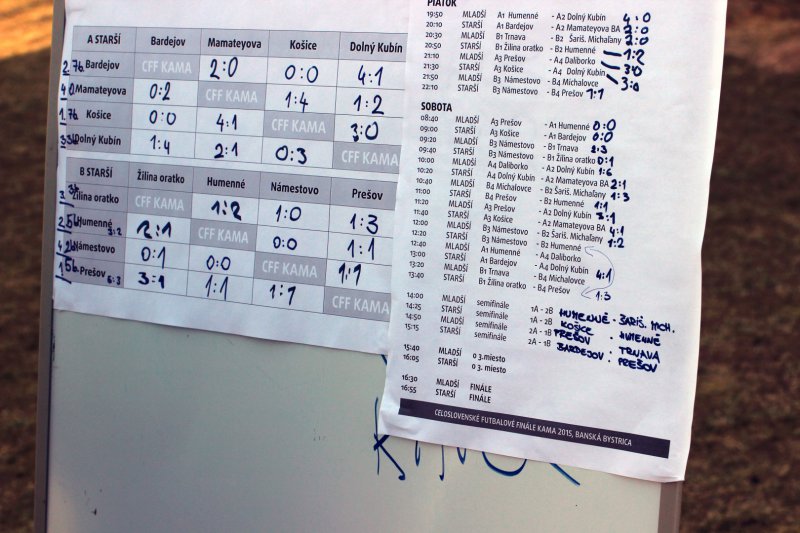 A STARŠÍ Bardejov Mamateyova Košice Dolný Kubín
2. 7b. Bardejov CFF KAMA 2:0 0:0 4:1
4. 0 Mamateyova 0:2 CFF KAMA 1:4 1:2
1. 7b Košice 0:0 4:1 CFF KAMA 3:0
3. Dolný Kubín 1:4 2:1 0:3 CFF KAMA
B STARŠÍ Žilina oratko Humenné Námestovo Prešov
3. Žilina oratko CFF KAMA 1:2 1:0 1:3
2. 5b Humenné 3:2 2:1 CFF KAMA 0:0 1:1
4. 2b Námestovo 0:1 0:0 CFF KAMA 1:1
1. 5b Prešov 6:3 3:1 1:1 1:1 CFF KAMA
PIATOK
19:50 MLADŠÍ A1 Humenné - A2 Dolný Kubín 4:0
20:10 STARŠÍ A1 Bardejov - A2 Mamateyova BA 2:0
20:30 MLADŠÍ B1 Trnava - B2 Šariš. Michaľany 2:0
20:50 STARŠÍ B1 Žilina oratko - B2 Humenné 1:2
21:10 MLADŠÍ A3 Prešov - A4 Daliborko 3:0
21:30 STARŠÍ A3 Košice - A4 Dolný Kubín 3:0
21:50 MLADŠÍ B3 Námestovo - B4 Michalovce
22:10 STARŠÍ B3 Námestovo - B4 Prešov 1:1
SOBOTA
08:40 MLADŠÍ A3 Prešov - A1 Humenné 0:0
09:00 STARŠÍ A3 Košice - A1 Bardejov 0:0
09:20 MLADŠÍ B3 Námestovo - B1 Trnava 2:3
09:40 STARŠÍ B3 Námestovo - B1 Žilina oratko 0:1
10:00 MLADŠÍ A4 Daliborko - A2 Dolný Kubín 1:6
10:20 STARŠÍ A4 Dolný Kubín - A2 Mamateyova BA 2:1
10:40 MLADŠÍ B4 Michalovce - B2 Šariš. Michaľany 1:3
11:00 STARŠÍ B4 Prešov - B2 Humenné 1:1
11:20 MLADŠÍ A3 Prešov - A2 Dolný Kubín 3:1
11:40 STARŠÍ A3 Košice - A2 Mamateyova BA 4:1
12:00 MLADŠÍ B3 Námestovo - B2 Šariš. Michaľany 1:2
12:20 STARŠÍ B3 Námestovo - B2 Humenné
12:40 MLADŠÍ A1 Humenné - A4 Daliborko
13:00 STARŠÍ A1 Bardejov - A4 Dolný Kubín 4:1
13:20 MLADŠÍ B1 Trnava - B4 Michalovce
13:40 STARŠÍ B1 Žilina oratko - B4 Prešov 1:3
14:00 MLADŠÍ semifinále 1A - 2B HUMENNÉ - ŠARIŠ. MICH.
14:25 STARŠÍ semifinále 1A - 2B KOŠICE : HUMENNÉ
14:50 MLADŠÍ semifinále 2A - 1B PREŠOV : TRNAVA
15:15 STARŠÍ semifinále 2A - 1B BARDEJOV : PREŠOV
15:40 MLADŠÍ o 3.miesto
16:05 STARŠÍ o 3. miesto
16:30 MLADŠÍ FINÁLE
16:55 STARŠÍ FINÁLE
CELOSLOVENSKÉ FUTBALOVÉ FINÁLE KAMA 2015, BANSKÁ BYSTRICA